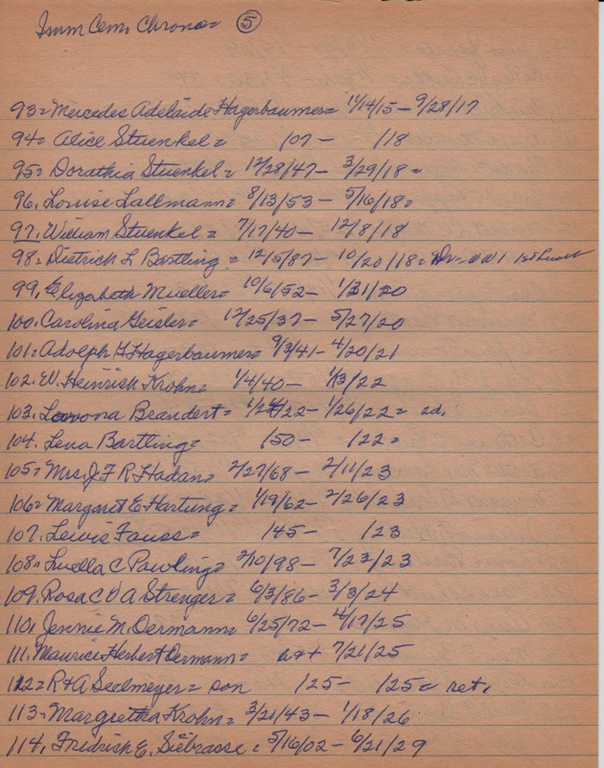 Imm Cem. Chrono= 5
93= Mercedes Adelaide Hagerbaumer= 11/14/15 – 9/28/17
94= Alice Stuenkel= /07 – /18
95= Dorathia Stuenkel= 12/28/47 – 3/29/18=
96. Louise Lallmann= 8/13/53 – 5/16/18=
97. William Stuenkel= 7/17/40 – 12/8/18
98= Dietrich L Bartling= 12/5/87 – 10/20/18= WW1 1st
99. Elizabeth Mueller= 10/6/52 – 1/31/20
100. Carolina Geisler= 12/25/37 – 5/27/20
101= Adolph H Hagerbaumer= 9/3/41 – 4/20/21
102. W. Heinrich Krohn= 1/4/40 – 1/13/22
103. Brandert= 1/24/22 – 1/26/22=
104. Lena Bartling= /50 – /22=
105= Mrs. J F R Hadan= 2/27/68 – 2/11/23
106= Margaret E Hartung= 1/19/62 – 2/26/23
107. Lewis Fauss= /45 – /23
108= Luella C Pawling= 2/10/98 – 7/23/23
109. Rosa C V A Strenger= 6/3/86 – 3/3/24
110. Jennie M. Oermann= 6/25/72 – 4/17/25
111. Maurice Herbert Oermann= 7/21/25
112= R+A Seelmeyer= son /25 – /25=
113= Margretha Krohn= 3/21/43 – 1/18/26
114. Fredrich E. Siebrasse= 5/16/02 – 6/21/29